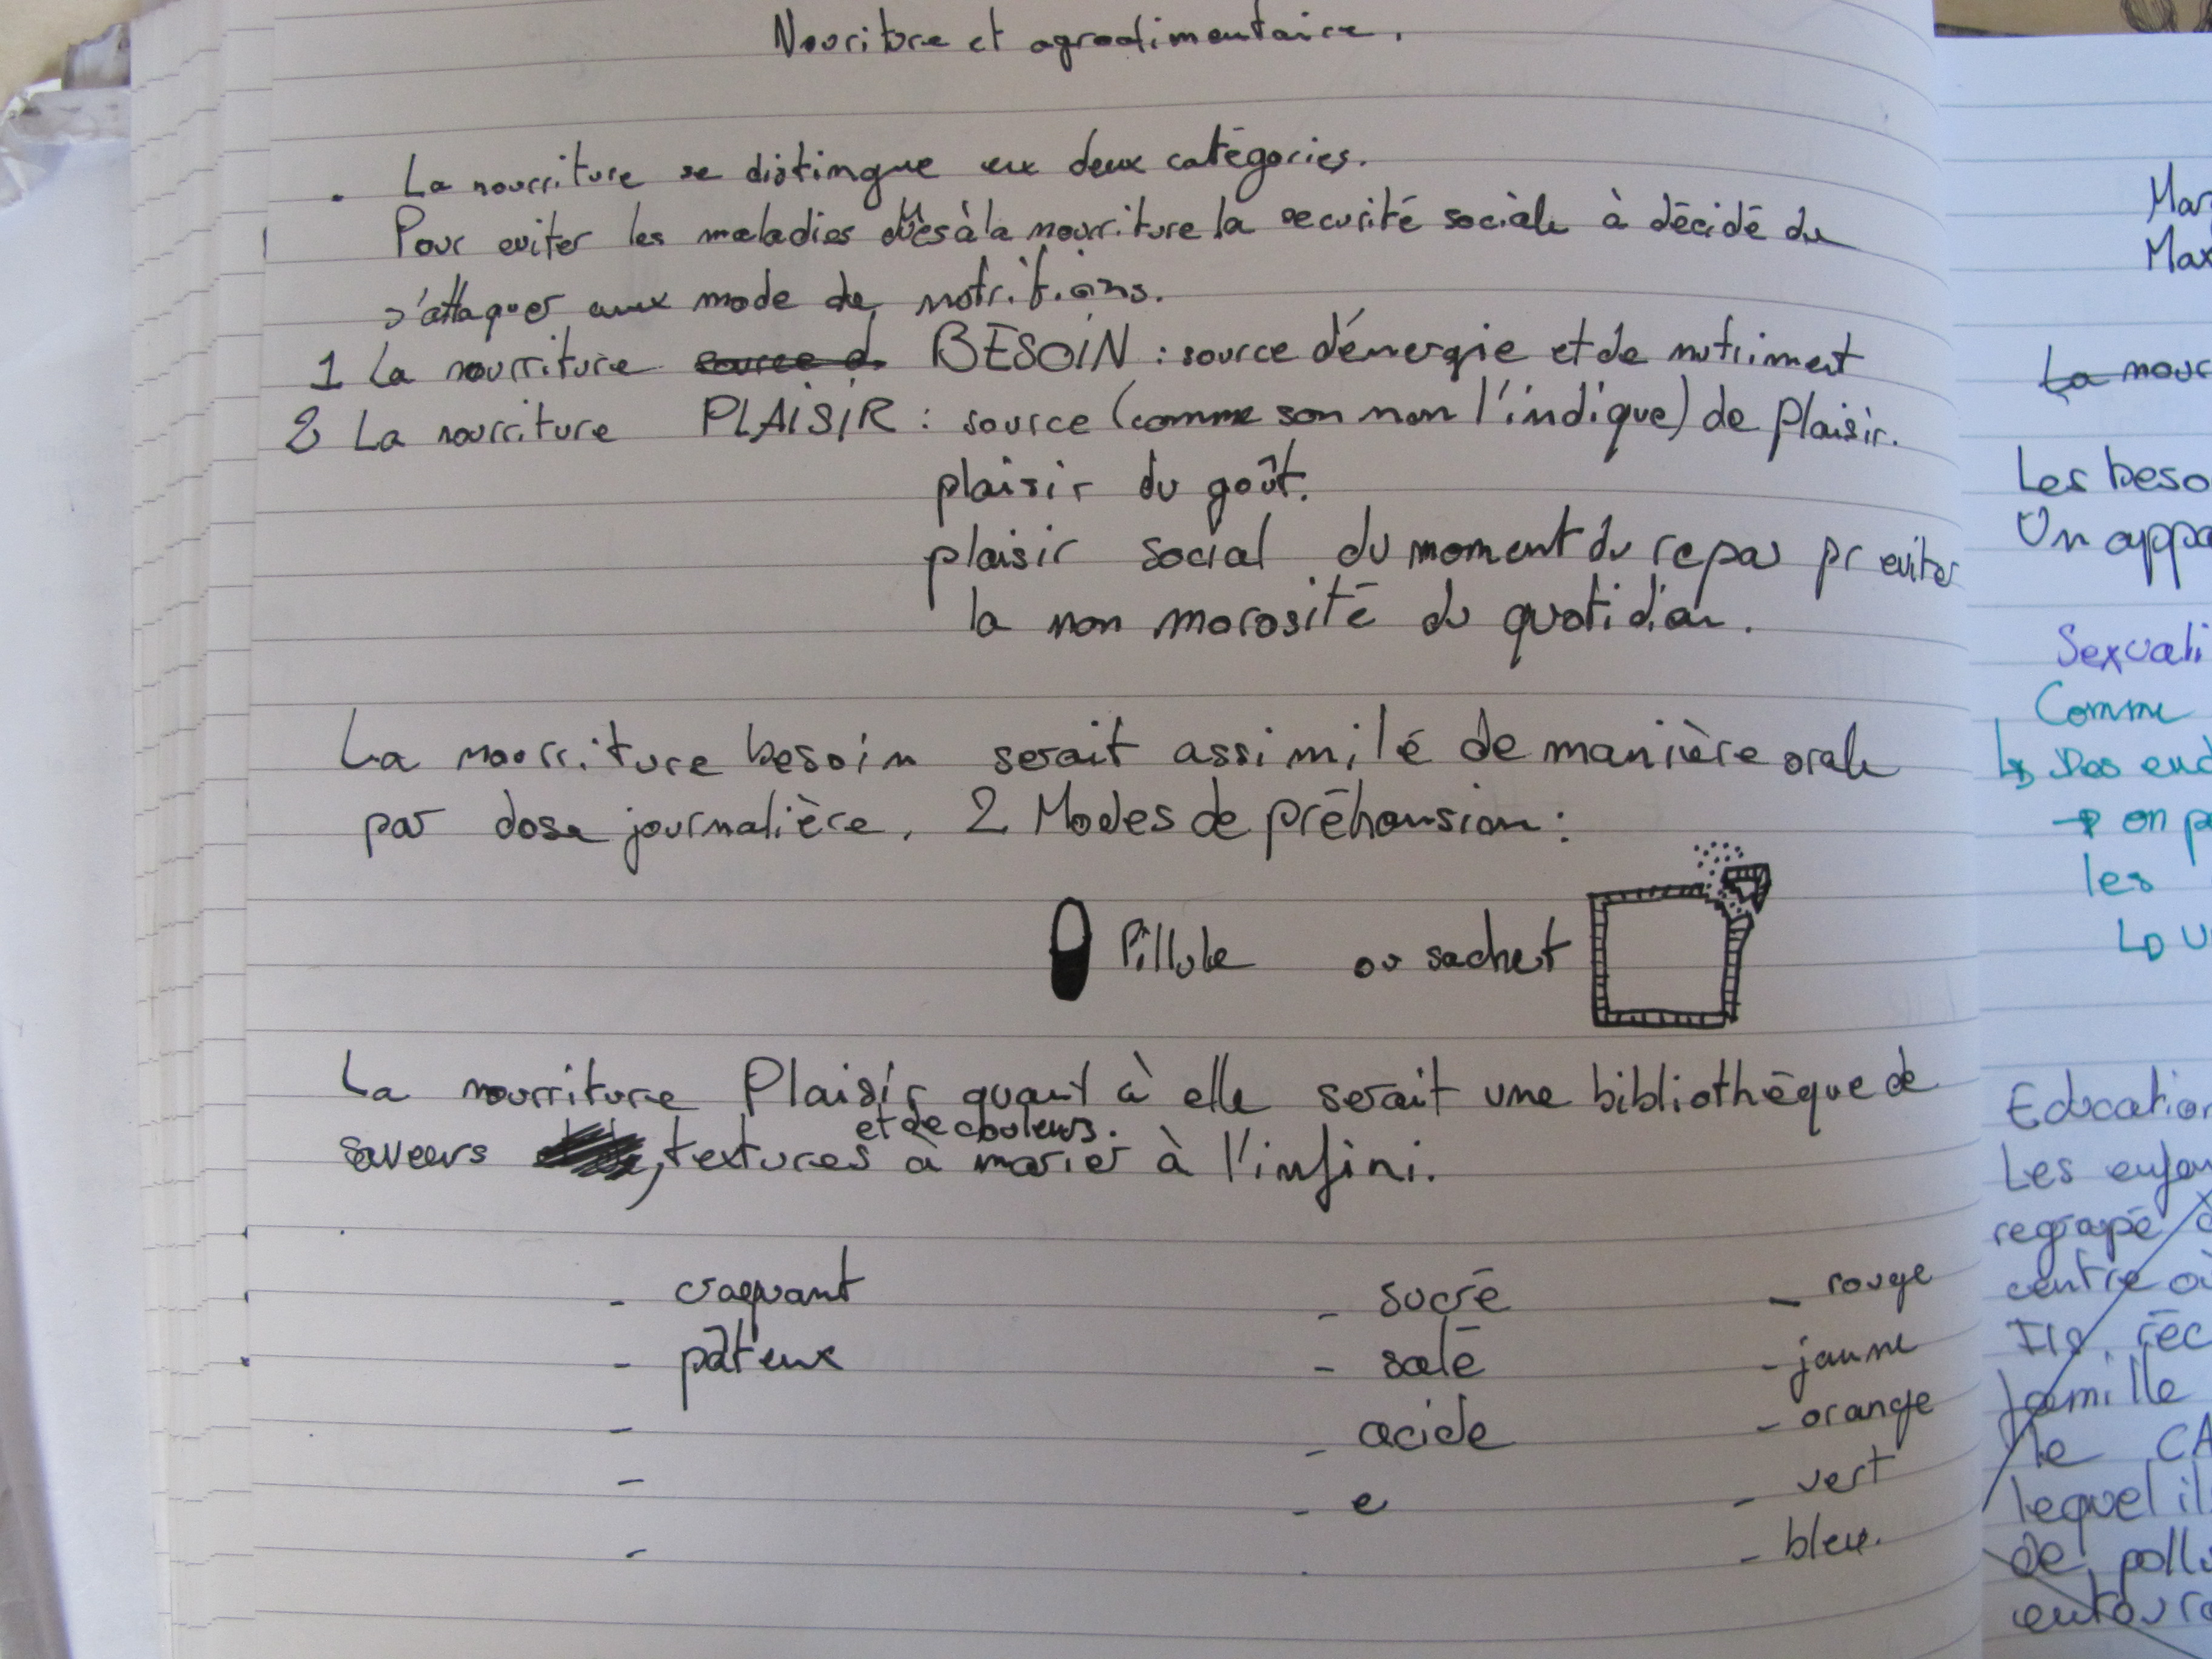 Nouriture et agroalimentaire.
. La nourriture se distingue en deux catégories.
Pour eviter les maladies dûes à la nourriture la securité sociale à décidé de
s'attaquer aux mode de nutritions.
1 La nourriture source d BESOIN : source d'énergie et de nutriment
2 La nourriture PLAISIR : source (comme son nom l'indique) de plaisir.
plaisir du goût.
plaisir social du moment du repas pr eviter
la non morosité du quotidien.
La nourriture besoin serait assimilé de manière orale
par dose journalière. 2 Modes de préhension :
Pillule ou sachet
La nourriture Plaisir quant à elle serait une bibliothèque de
et de couleurs.
saveurs , textures à marier à l'infini.
- craquant - sucré - rouge
- pâteux - salé - jaune
- - acide - orange
- - e - vert
- - bleu.
Mar
Max
La nour
Les beso
Un appa
Sexuali
Comme
↳ Des end
→ on p
les
Education
Les enfan
regroupé
centre où
Ils réc
famille
le CA
lequel il
de pollu
entoure